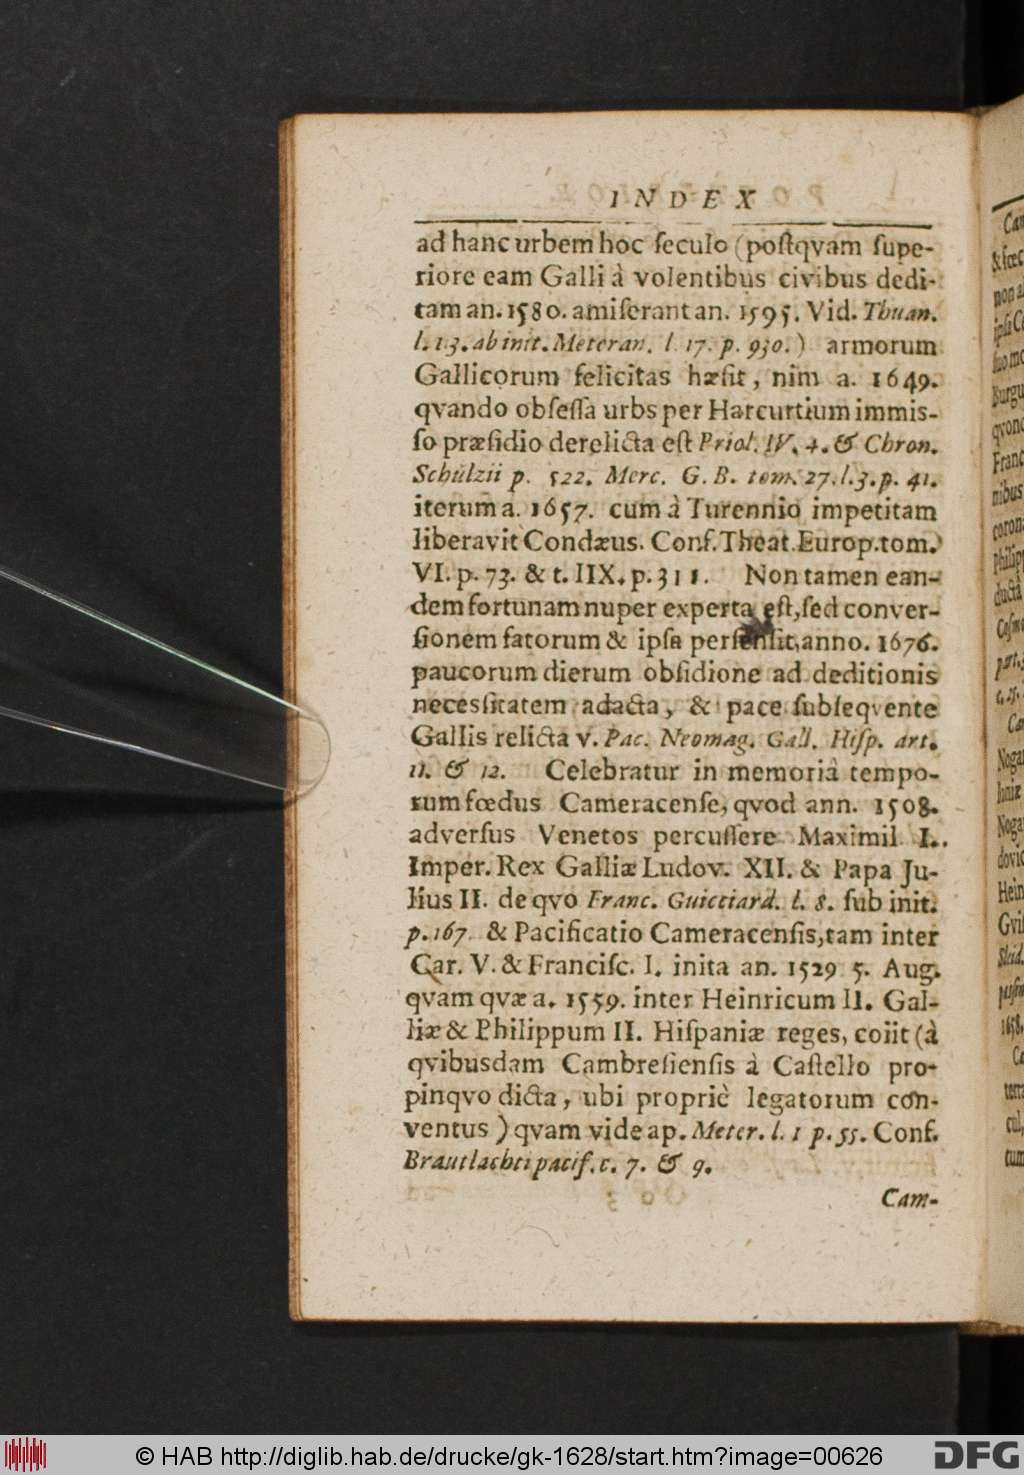 INDEX
ad hanc urbem hoc ſeculo (poſtqvam ſupe-
riore eam Galli à volentibus civibus dedi-
tam an. 1580. amiſerant an. 1595. Vid. Thuan.
l. 13. ab init. Meteran. l. 17. p. 930.) armorum
Gallicorum felicitas hæſit, nim a. 1649.
qvando obſeſſa urbs per Harcurtium immis-
ſo præſidio derelicta eſt Priol. IV. 4. & Chron.
Schülzii p. 522. Merc. G. B. tom. 27. l. 3. p. 41.
iterum a. 1657. cum à Turennio impetitam
liberavit Condæus. Conf. Theat. Europ. tom.
VI. p. 73. & t. IIX. p. 311. Non tamen ean-
dem fortunam nuper experta eſt, ſed conver-
ſionem fatorum & ipſa perſenſit, anno. 1676.
paucorum dierum obſidione ad deditionis
necesſitatem adacta, & pace ſubſeqvente
Gallis relicta v. Pac. Neomag. Gall. Hiſp. art.
11. & 12. Celebratur in memoriâ tempo-
rum fœdus Cameracenſe, qvod ann. 1508.
adverſus Venetos percuſſere Maximil I.
Imper. Rex Galliæ Ludov. XII. & Papa Ju-
lius II. de qvo Franc. Guicciard. l. 8. ſub init.
p. 167. & Pacificatio Cameracenſis, tam inter
Car. V. & Franciſc. I. inita an. 1529 5. Aug.
qvam qvæ a. 1559. inter Heinricum II. Gal-
liæ & Philippum II. Hiſpaniæ reges, coiit (à
qvibusdam Cambreſienſis à Caſtello pro-
pinqvo dicta, ubi propriè legatorum con-
ventus) qvam vide ap. Meter. l. 1 p. 55. Conf.
Brautlachti pacif. c. 7. & 9.
Cam-
© HAB http://diglib.hab.de/drucke/gk-1628/start.htm?image=00626
DFG